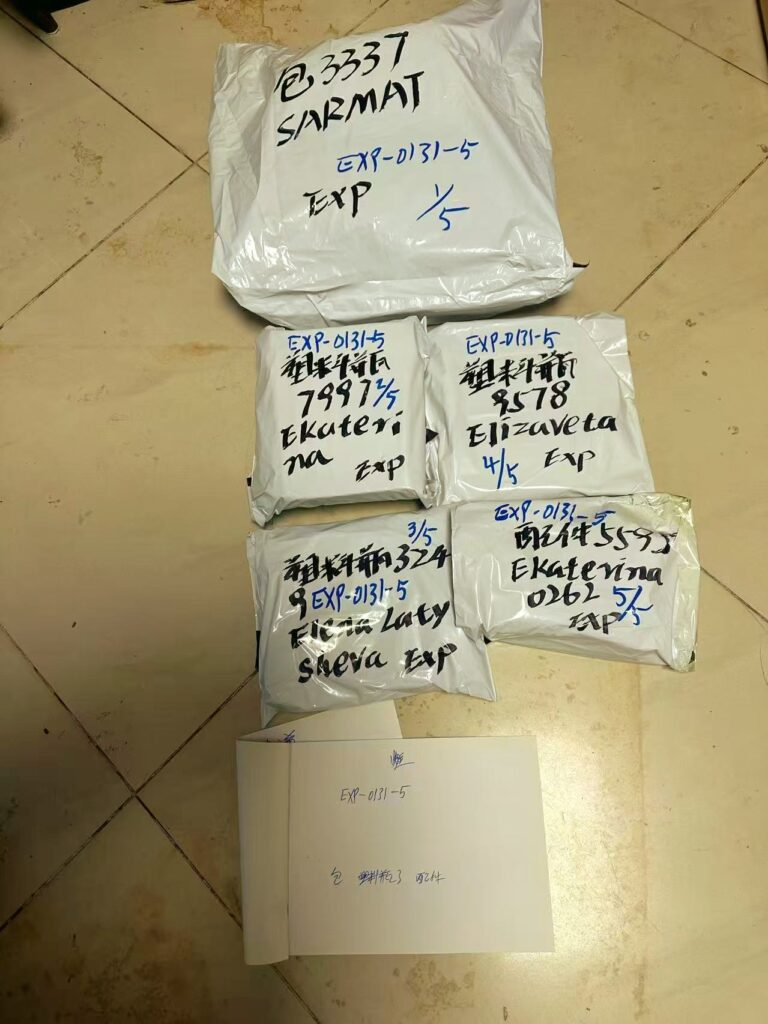 包3337
SARMAT
EXP-0131-5
EXP
1/5
EXP-0131-5
塑料瓶
7997 2/5
Ekateri
na Exp
EXP-0131-5
塑料瓶
9578
Elizaveta
4/5 Exp
3/5
塑料瓶324
9 EXP-0131-5
Elena Laty
sheva Exp
EXP-0131-5
配件5595
Ekaterina
0262 5/5
Exp
EXP-0131-5
包 塑料瓶3 配件